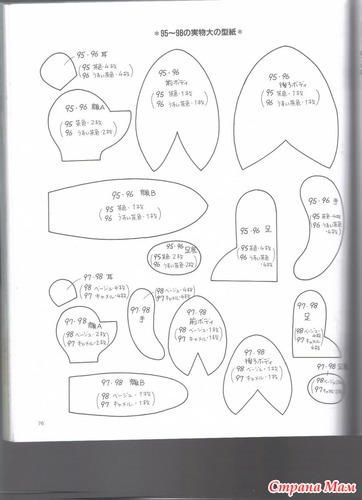 *95~98の実物大の型紙*
95・96 耳
95 茶色・4枚
96 うすい茶色・4枚
95・96 頭A
95 茶色・2枚
96 うすい茶色・2枚
95・96
前ボディ
95 茶色・1枚
96 うすい茶色・1枚
95・96
後ろボディ
95 茶色・1枚
96 うすい茶色・1枚
95・96 頭B
95 茶色・1枚
96 うすい茶色・1枚
95・96 足底
95 茶色・2枚
96 うすい茶色・2枚
95・96 足
95 茶色・4枚
96 うすい茶色・4枚
95・96 手
95 茶色・4枚
96 うすい茶色・4枚
97・98 耳
98 ベージュ・4枚
97 キャメル・4枚
97・98
頭A
98 ベージュ・2枚
97 キャメル・2枚
98 ベージュ・4枚
97 キャメル・4枚
97・98
手
97・98
前ボディ
98 ベージュ・1枚
97 キャメル・1枚
97・98
後ろボディ
98 ベージュ・1枚
97 キャメル・1枚
97・98
足
98 ベージュ・4枚
97 キャメル・4枚
97・98 足底
98 ベージュ・2枚
97 キャメル・2枚
97・98 頭B
98 ベージュ・1枚
97 キャメル・1枚
76
Страна Мам